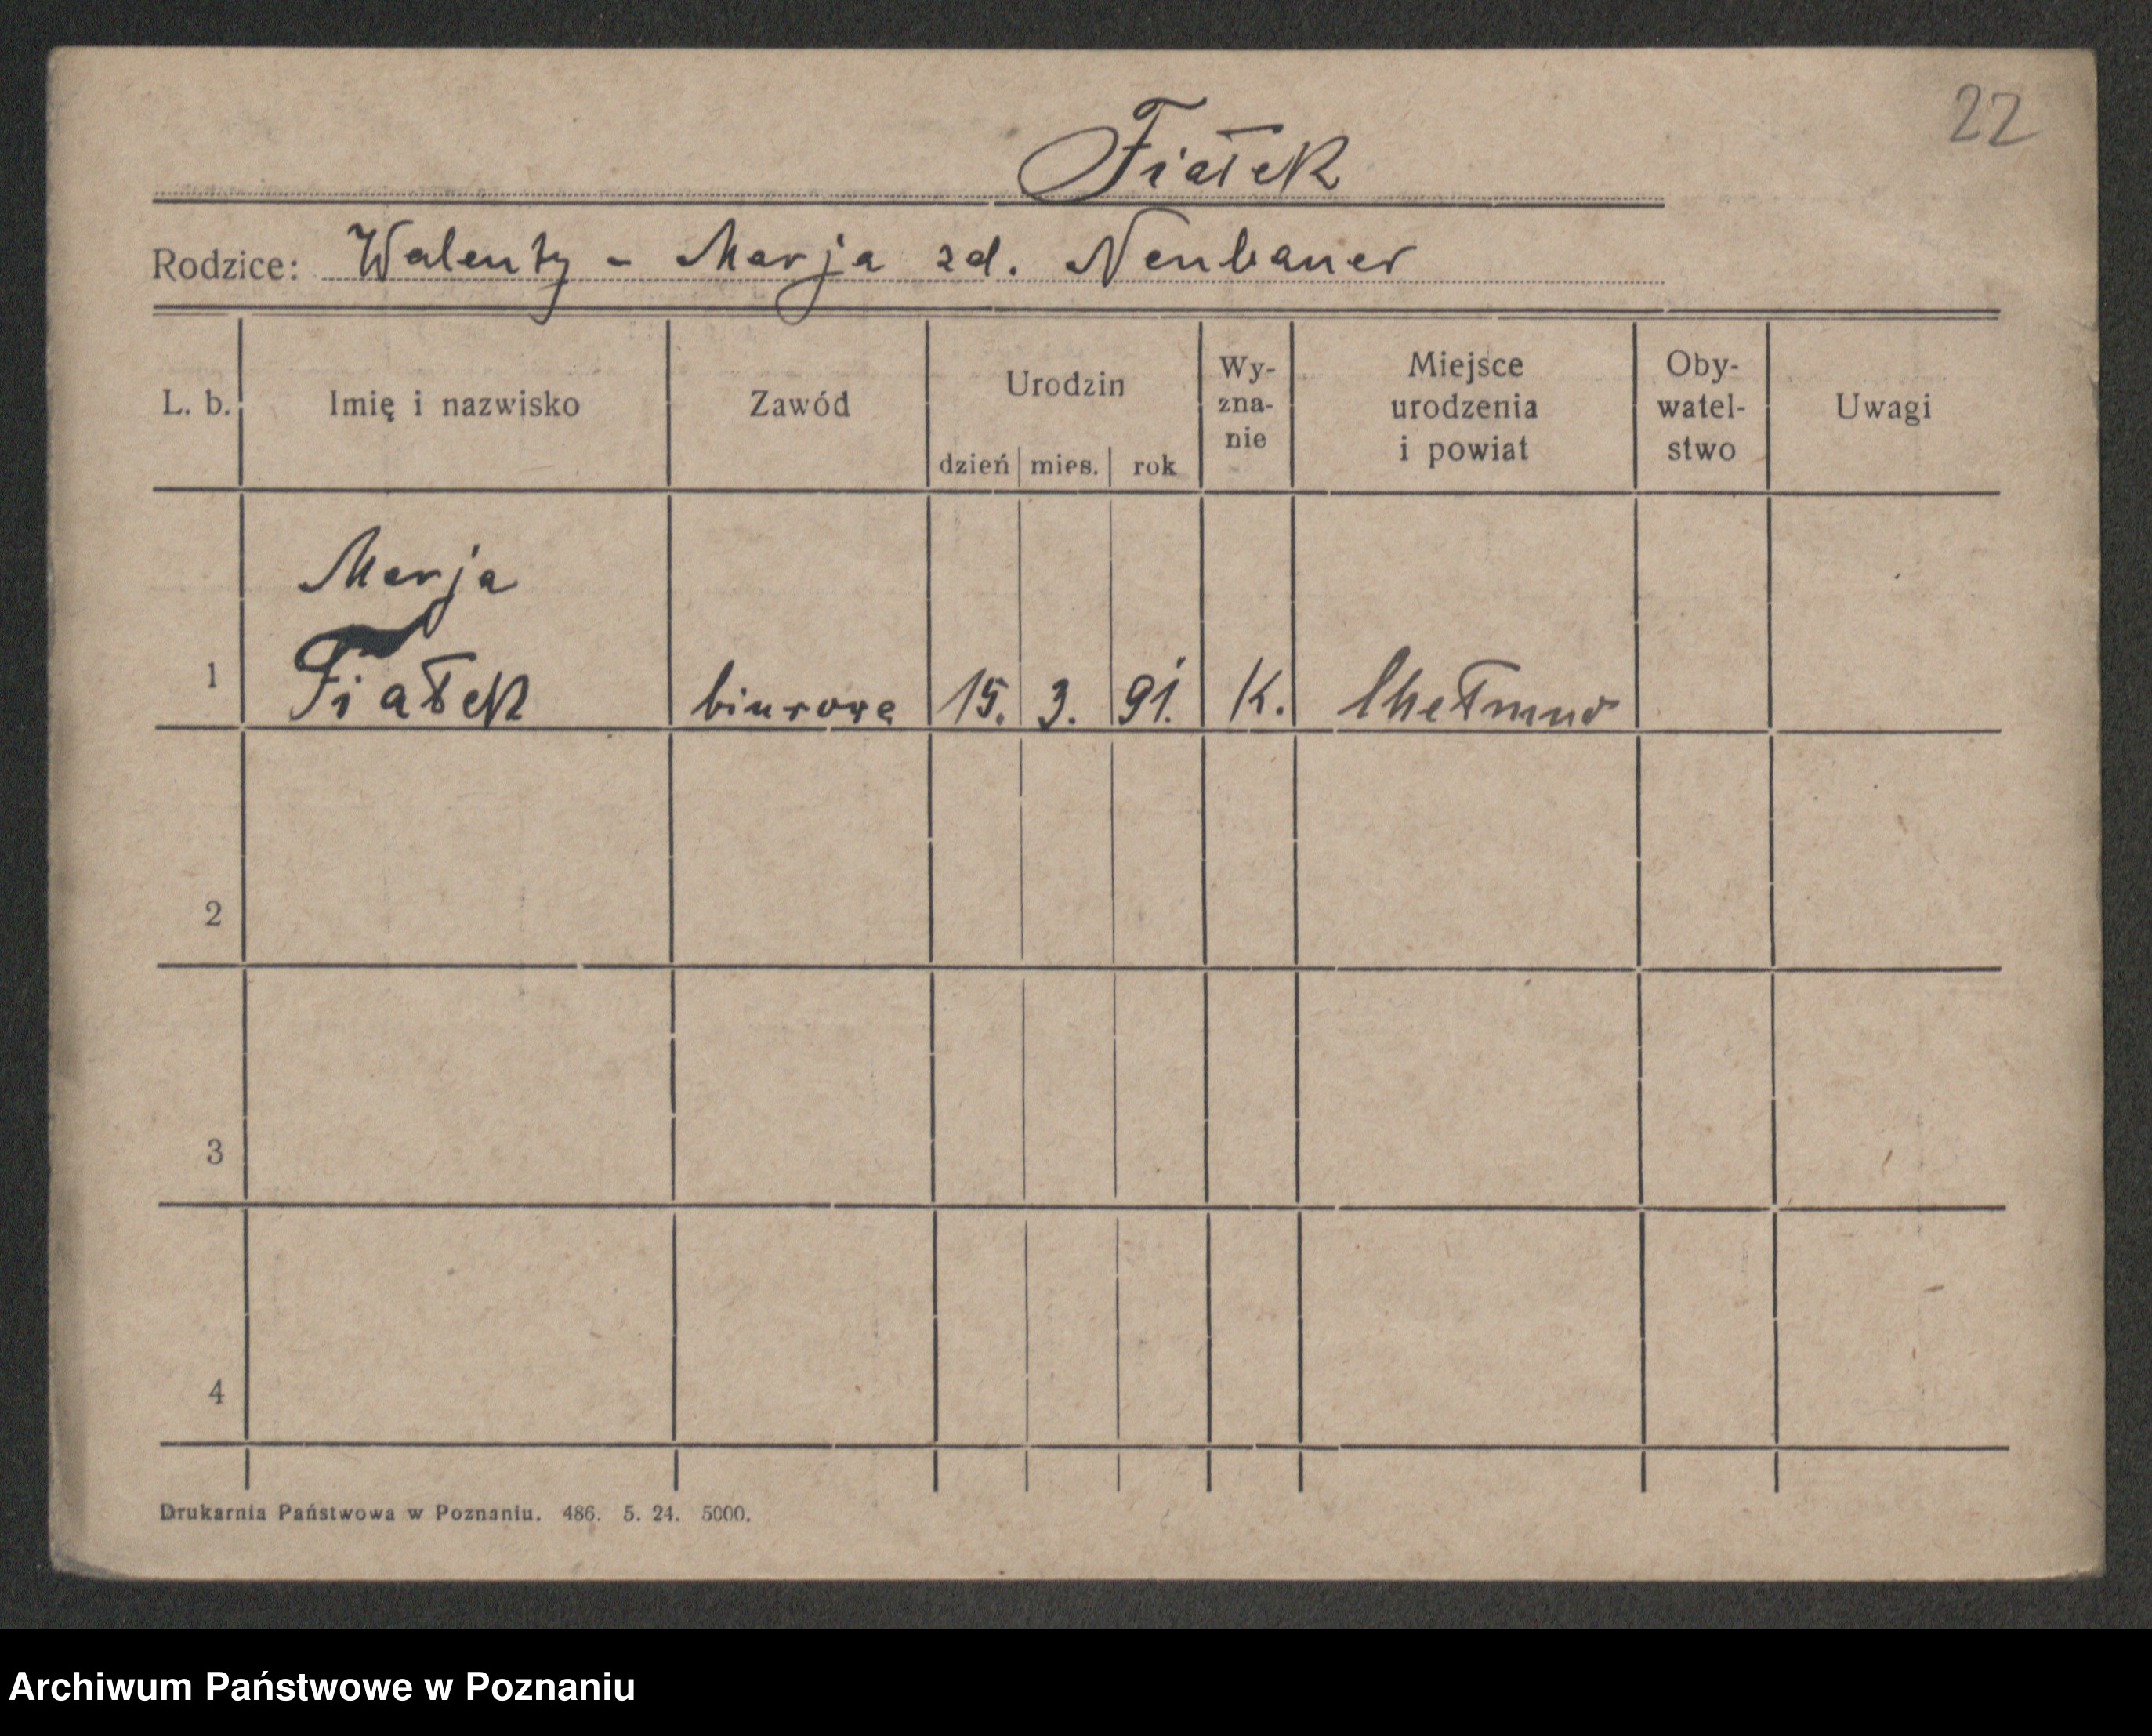 22
Fiałek
Rodzice: Walenty - Marja zd. Neubauer
L. b. Imię i nazwisko Zawód Urodzin dzień mies. rok Wy-zna-nie Miejsce urodzenia i powiat Oby-watel-stwo Uwagi
Marja
1 Fiałek biurowa 15. 3. 91. K. Chełmno
2
3
4
Drukarnia Państwowa w Poznaniu. 486. 5. 24. 5000.
Archiwum Państwowe w Poznaniu